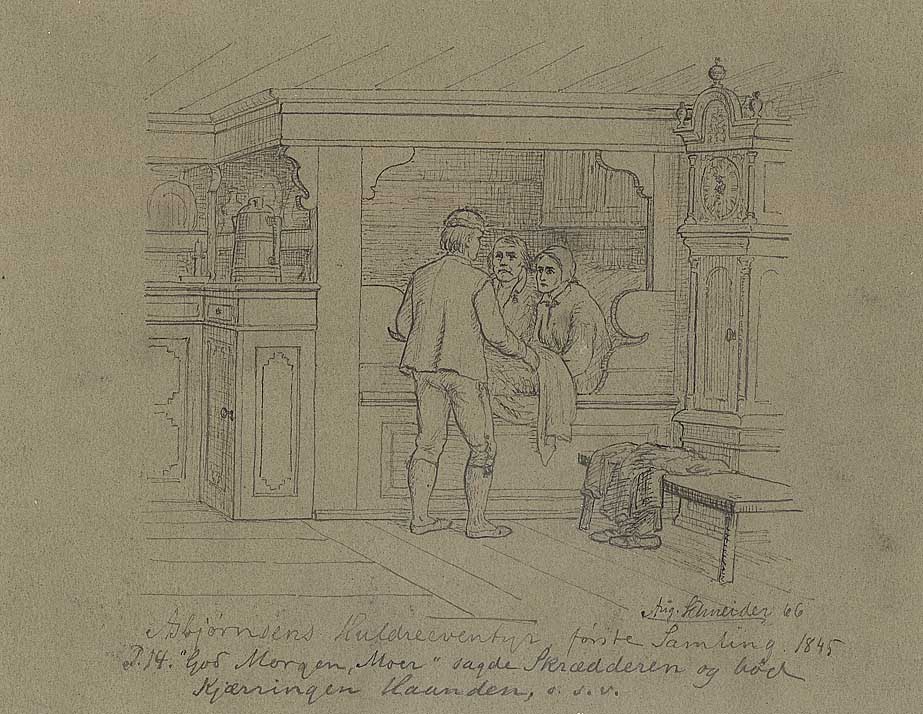 Aug. Schneider 66
Asbjørnsens Huldreeventyr, første Samling. 1845
P. 14. "God Morgen, Moer" sagde Skrædderen og bød
Kjærringen Haanden, o. s. v.